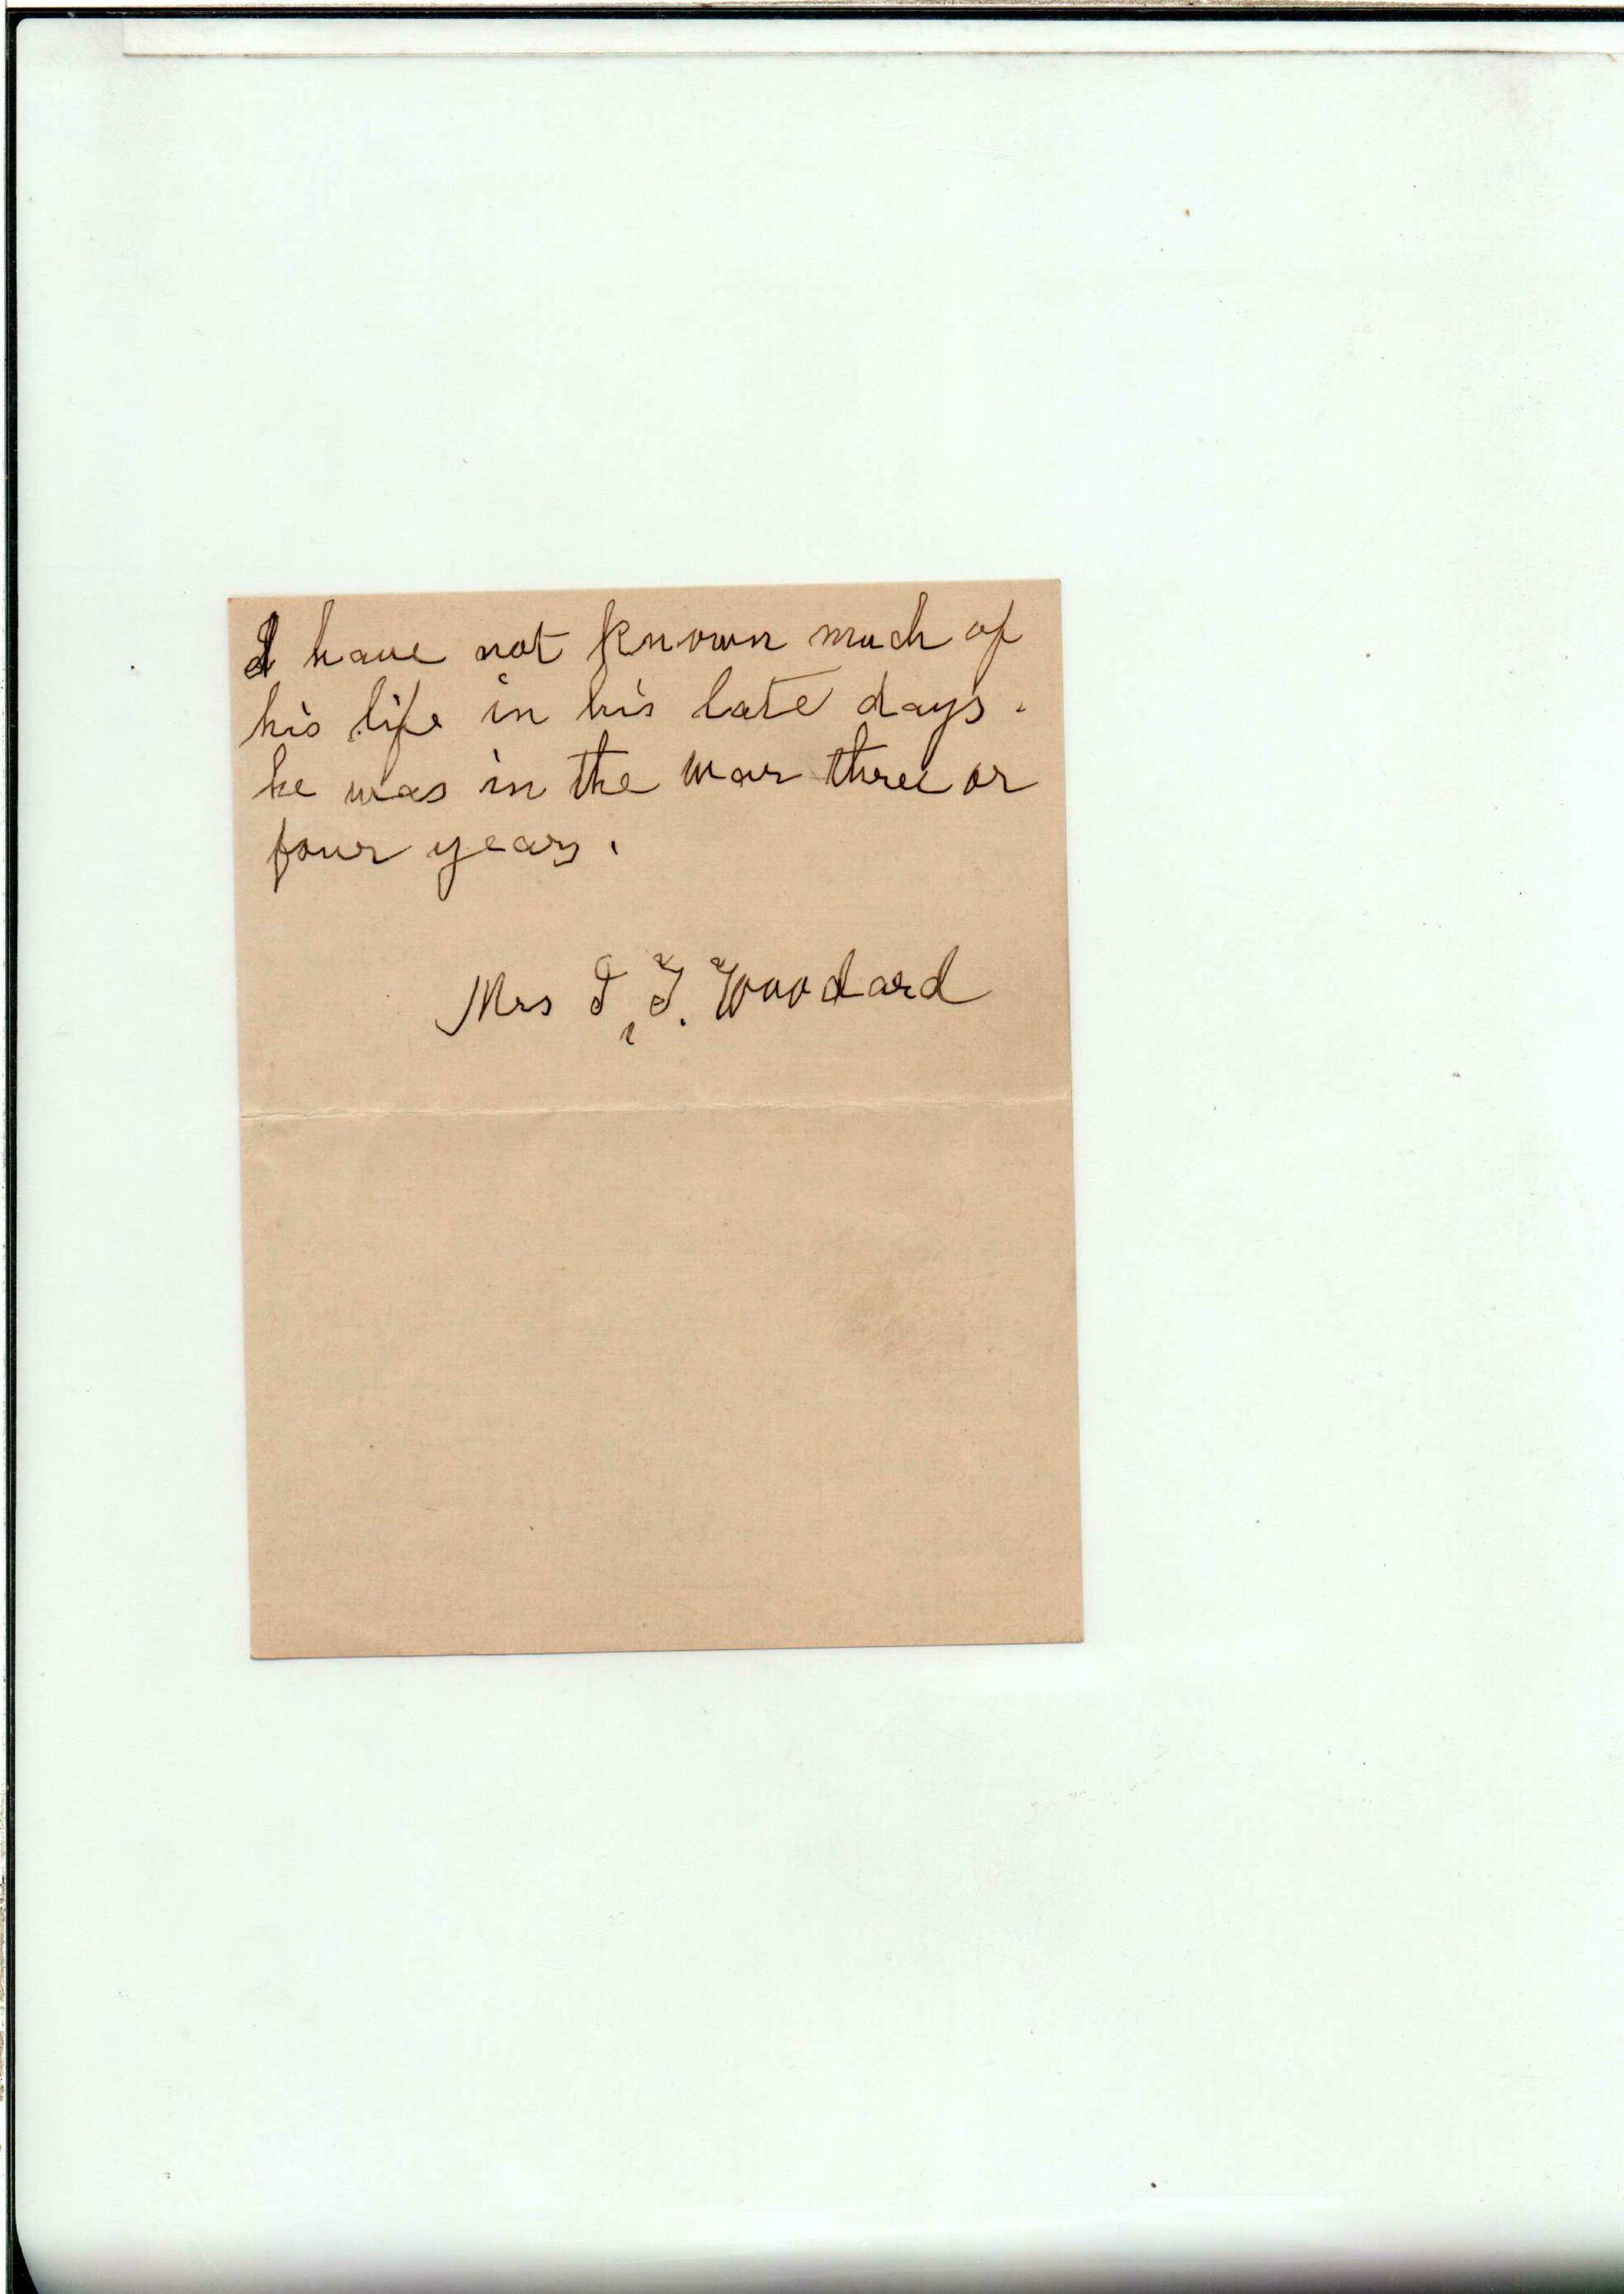 I have not known much of
his life in his late days.
he was in the war three or
four years.
Mrs Woodard